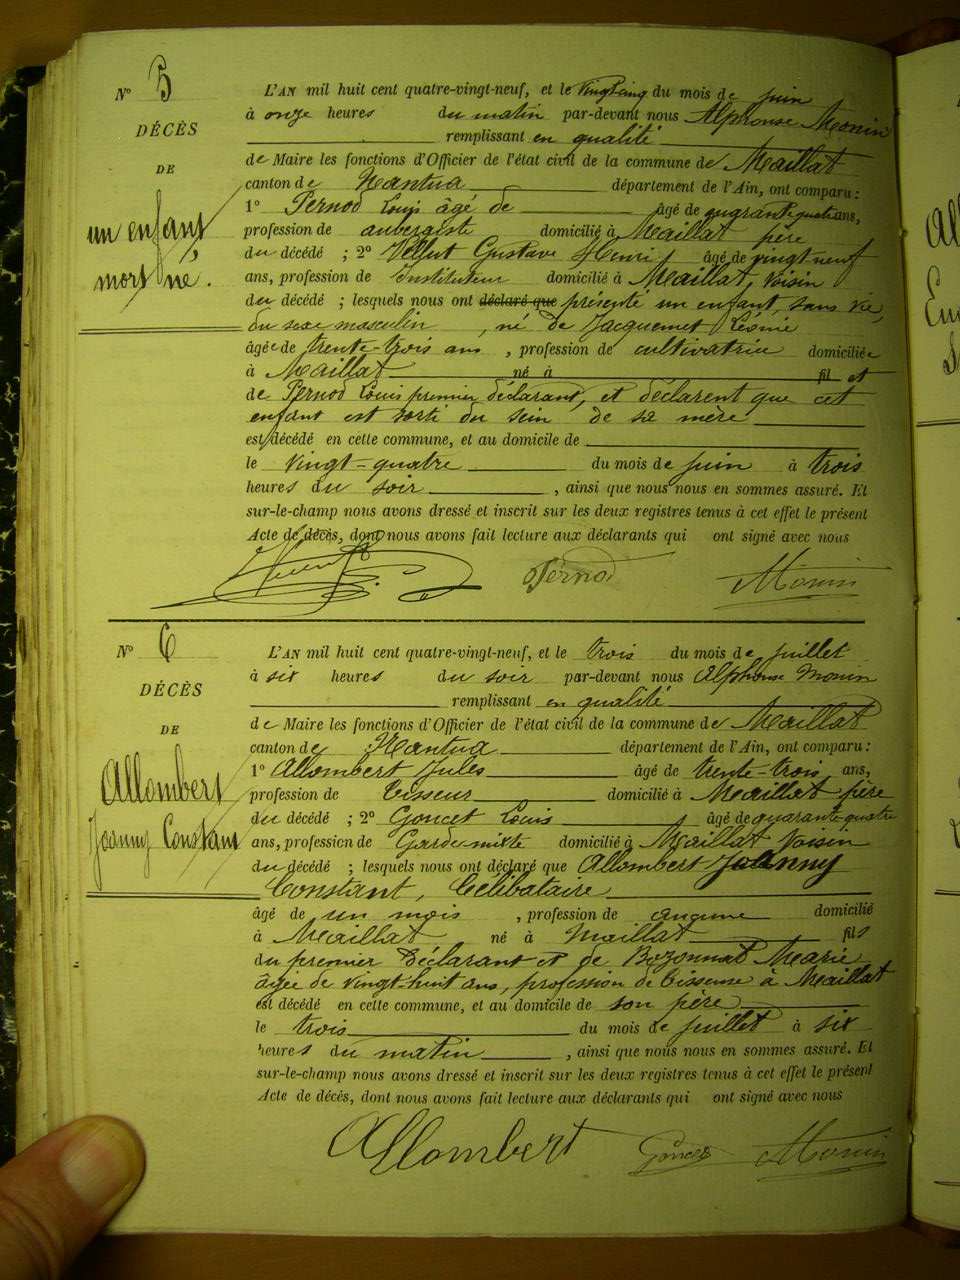 N° 5
DÉCÈS
DE
un enfant
mort né.
L'AN mil huit cent quatre-vingt-neuf, et le vingt cinq du mois de juin
à onze heures du matin par-devant nous Alphonse Monin
remplissant en qualité
de Maire les fonctions d'Officier de l'état civil de la commune de Maillat
canton de Nantua département de l'Ain, ont comparu :
1° Pernod Louis âgé de âgé de quarante quatre ans,
profession de aubergiste domicilié à Maillat père
du décédé ; 2° Vellut Gustave Henri âgé de vingt neuf
ans, profession de Instituteur domicilié à Maillat, voisin
du décédé ; lesquels nous ont déclaré que présenté un enfant, sans vie,
du sexe masculin , né de Jacquemet Léonie
âgée de trente-trois ans , profession de cultivatrice domiciliée
à Maillat né à fil et
de Pernod Louis premier déclarant, et déclarent que cet
enfant est sorti du sein de sa mère
est décédé en cette commune, et au domicile de
le vingt-quatre du mois de juin à trois
heures du soir , ainsi que nous nous en sommes assuré. Et
sur-le-champ nous avons dressé et inscrit sur les deux registres tenus à cet effet le présent
Acte de décès, dont nous avons fait lecture aux déclarants qui ont signé avec nous
Pernod Monin
N° 6
DÉCÈS
DE
Allombert
Joanny Constant
L'AN mil huit cent quatre-vingt-neuf, et le trois du mois de juillet
à six heures du soir par-devant nous Alphonse Monin
remplissant en qualité
de Maire les fonctions d'Officier de l'état civil de la commune de Maillat
canton de Nantua département de l'Ain, ont comparu :
1° Allombert Jules âgé de trente-trois ans,
profession de Tisseur domicilié à Maillat père
du décédé ; 2° Goncet Louis âgé de quarante quatre
ans, profession de Garde mixte domicilié à Maillat voisin
du décédé ; lesquels nous ont déclaré que Allombert Joanny
Constant, Célibataire
âgé de un mois , profession de aucune domicilié
à Maillat né à Maillat fils
du premier Déclarant et de Bozonnat Marie
âgée de vingt-huit ans, profession de Tisseuse à Maillat
est décédé en cette commune, et au domicile de son père
le trois du mois de juillet à six
heures du matin , ainsi que nous nous en sommes assuré. Et
sur-le-champ nous avons dressé et inscrit sur les deux registres tenus à cet effet le présent
Acte de décès, dont nous avons fait lecture aux déclarants qui ont signé avec nous
Allombert Goncet Monin